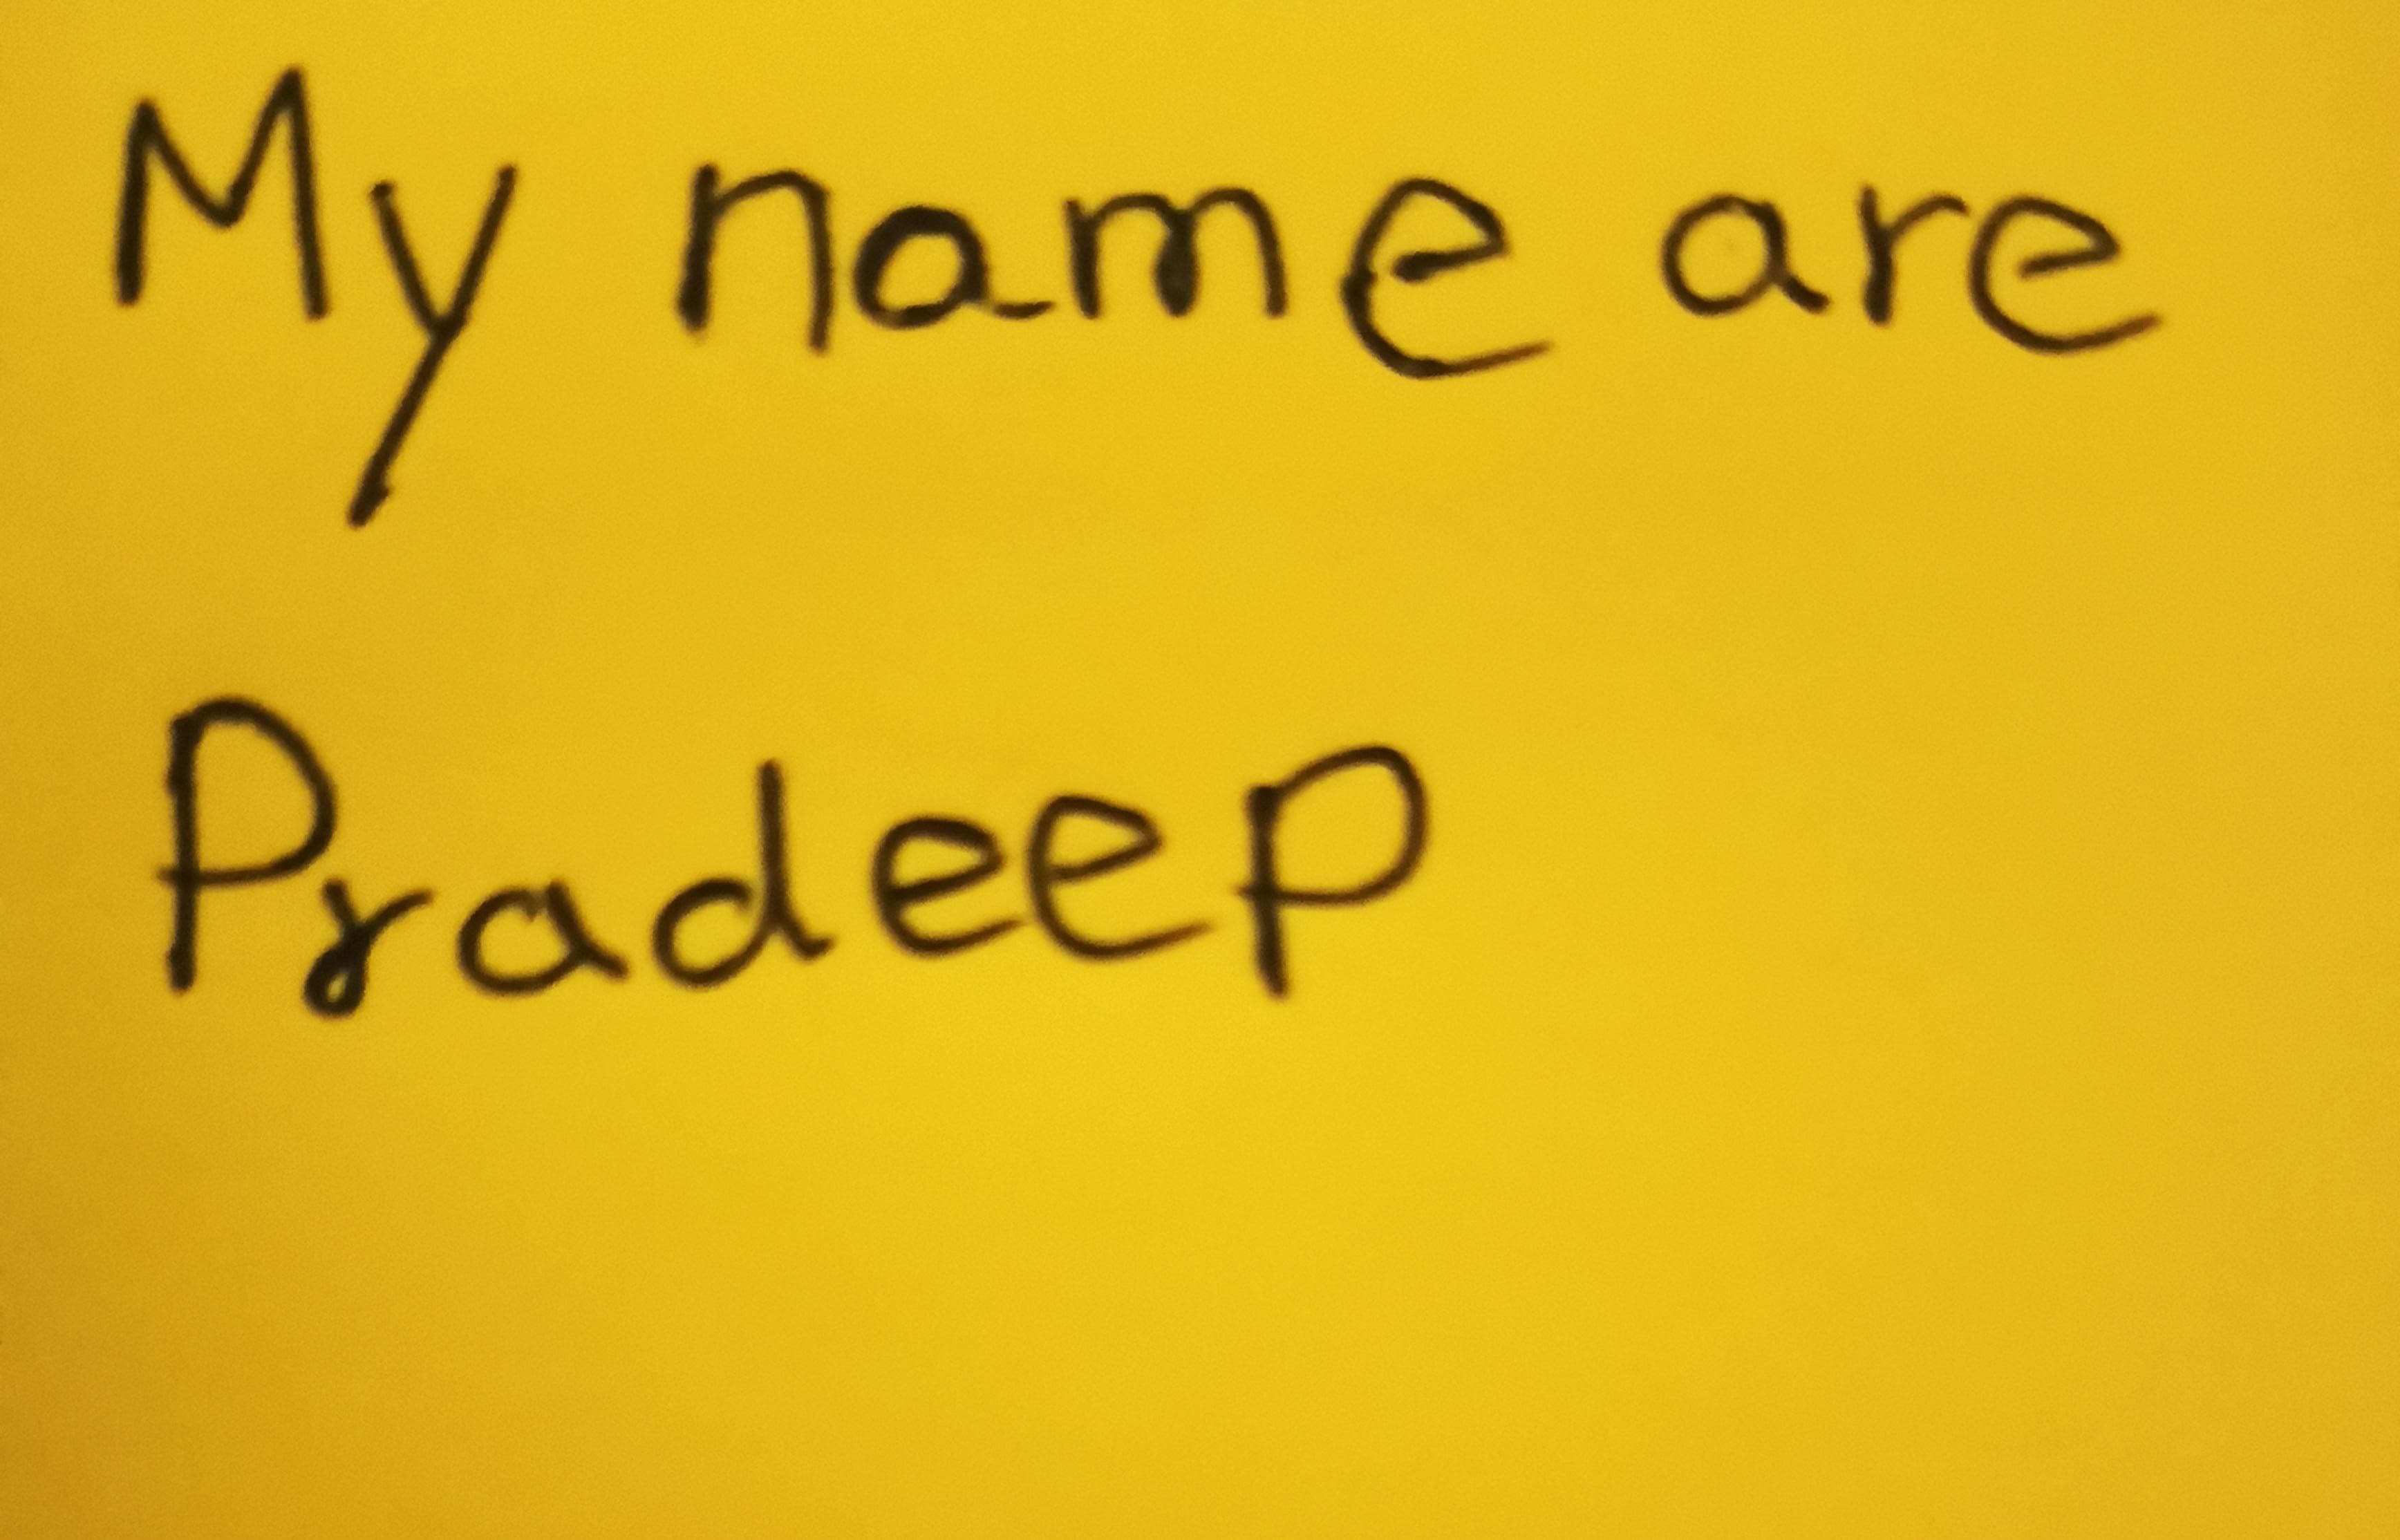 My name are
Pradeep